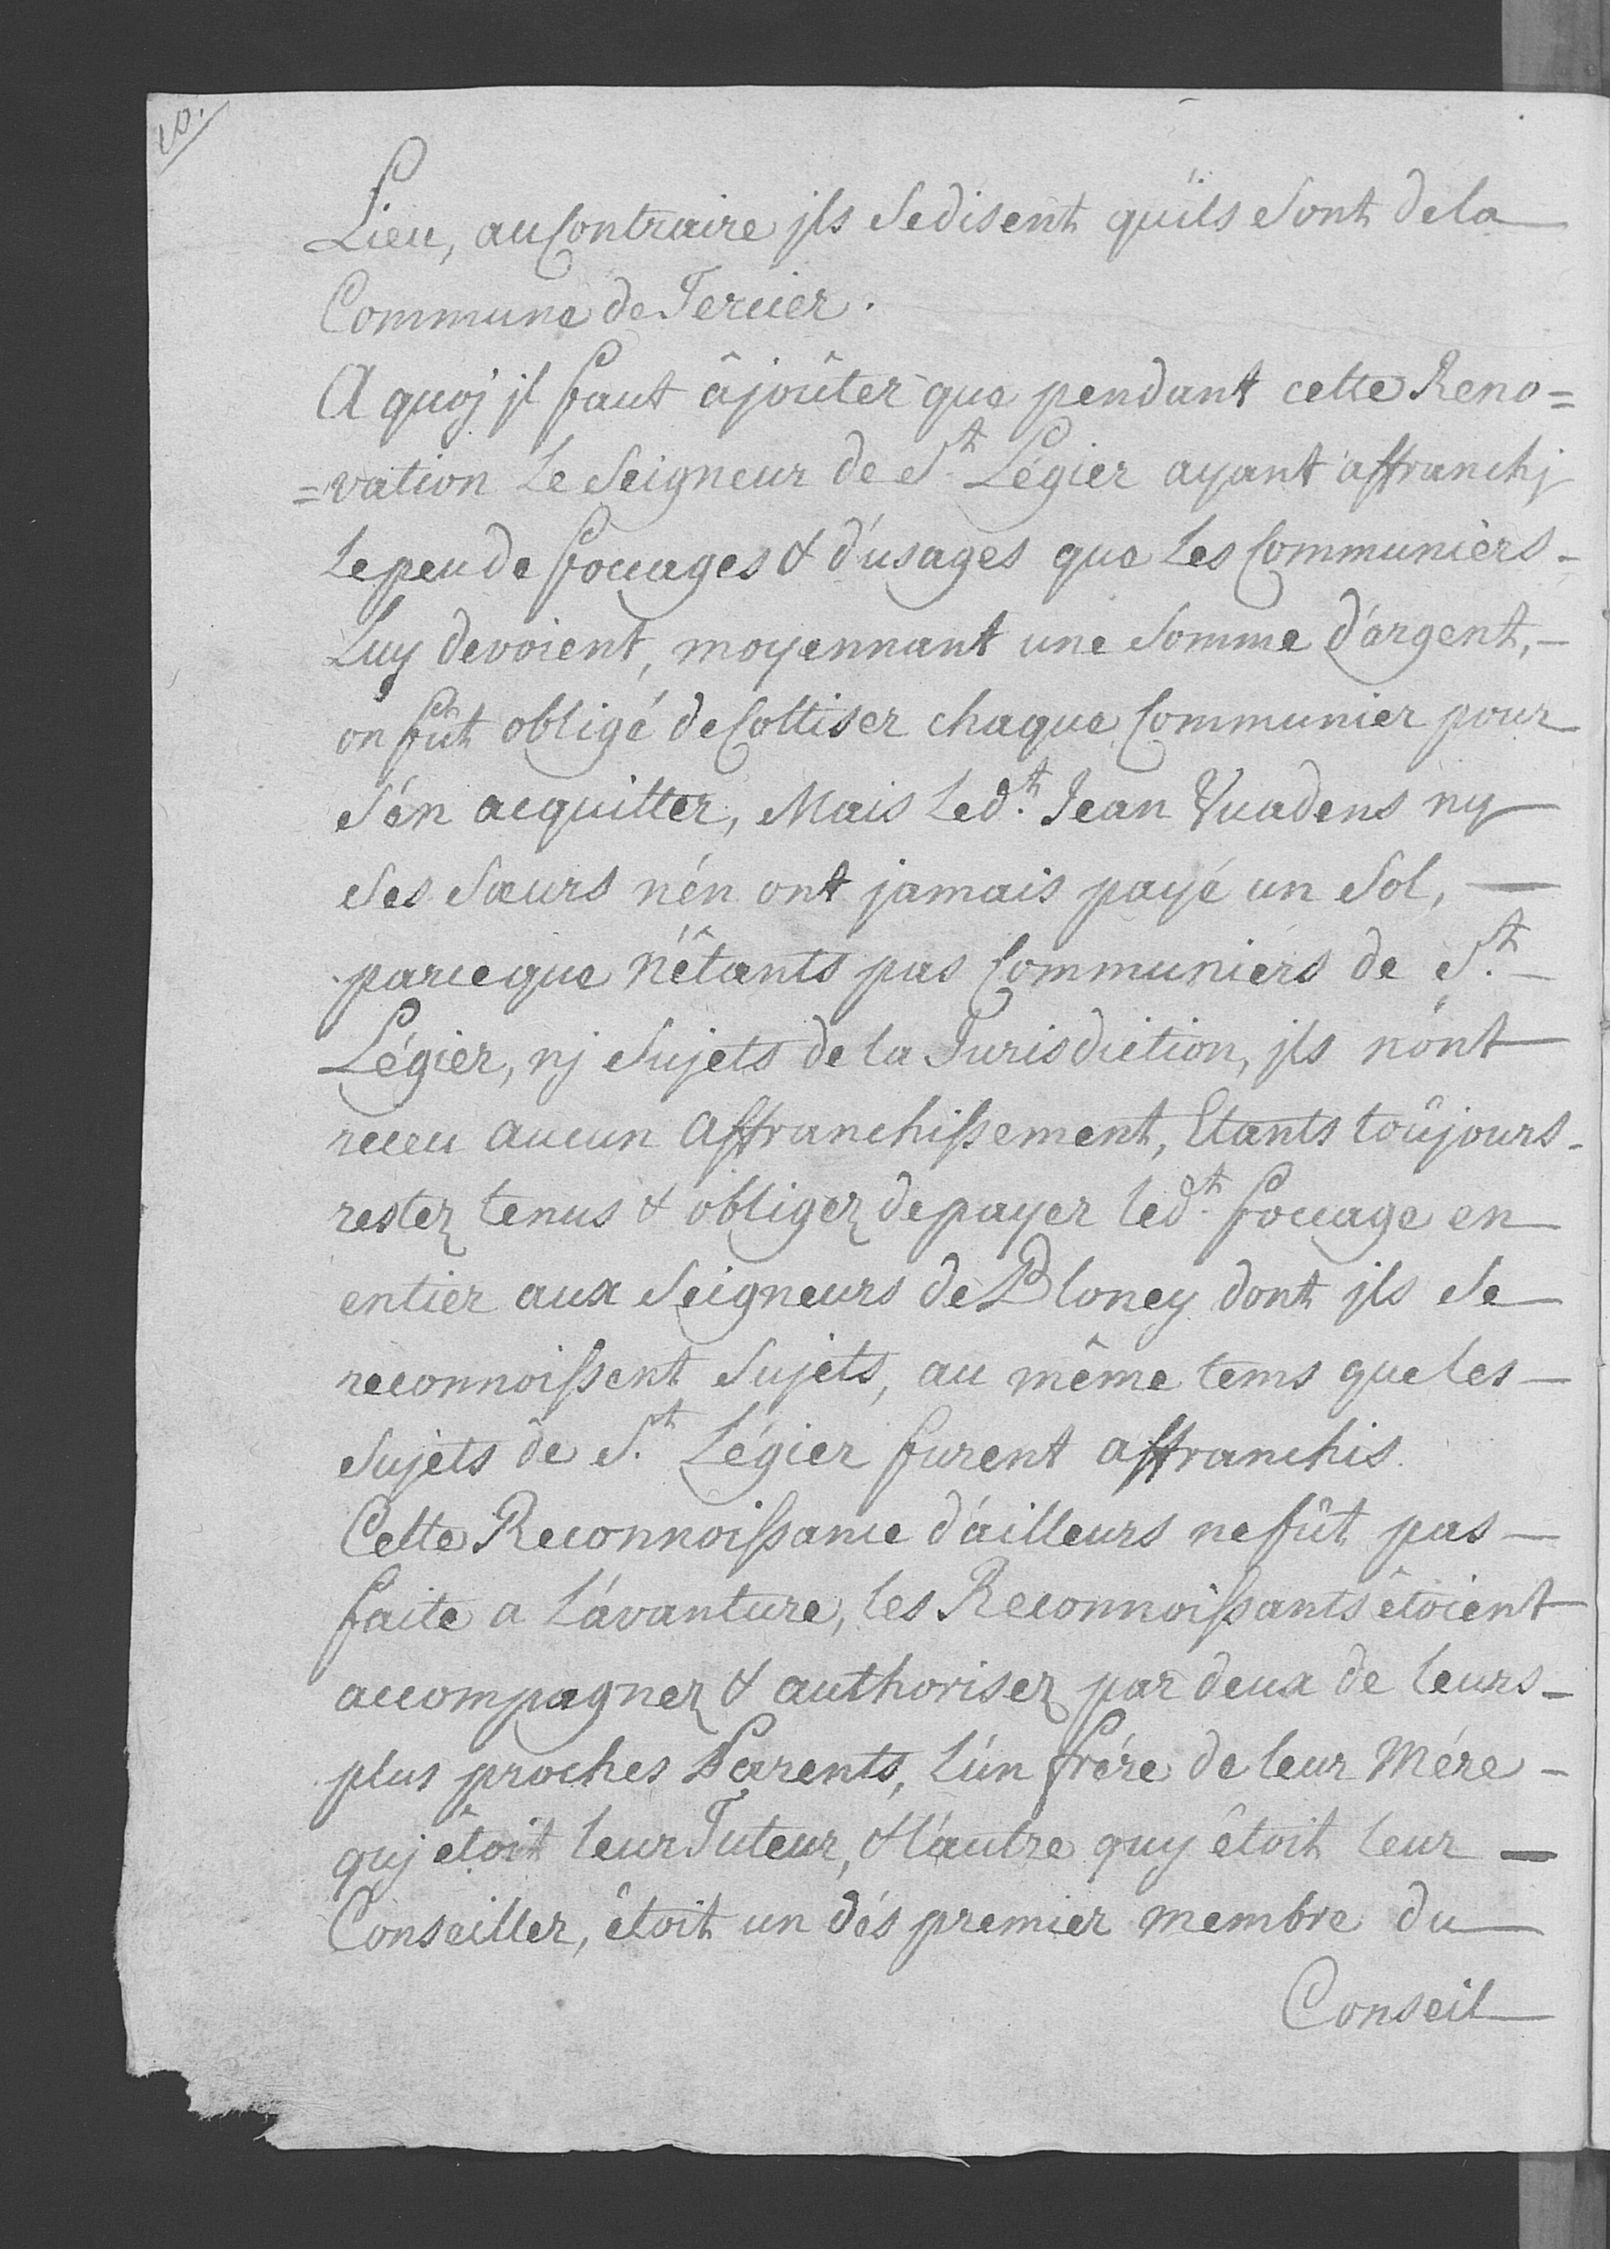 10.
Lieu, au Contraire jls Se disent qu'ils Sont de la
Commune de Tercier.
A quoj jl faut âjoûter que pendant cette Reno=
=vation Le Seigneur de St. Légier ayant affranchj
Le peu de foccages & d'usages que Les Communiers
Luy devoient, moyennant une Somme d'argent,
on fût obligé de Cottiser chaque Communier pour
S'én acquitter, Mais Ledt. Jean Vuadens ny
Ses Sœurs n'én ont jamais payé un Sol,
parceque n'êtants pas Communiérs de St.
Légier, nj Sujets de la Jurisdiction, jls n'ont
receu aucun affranchissement, Etants toûjours
restez tenus & obligez de payer ledt. foccage en
entier aux Seigneurs de Bloney dont jls Se
reconnoissent Sujets, au même tems que les
Sujets de St. Légier furent affranchis.
Cette Reconnoissance d'ailleurs ne fût pas
faite a L'avanture, les Reconnoissants êtoient
accompagnez & authorisez par deux de leurs
plus proches Parents, L'ún frére de leur Mére
quj êtoit leur Tuteur, & l'autre quy êtoit leur
Conseiller, êtoit un dés premier membre du
Conseil